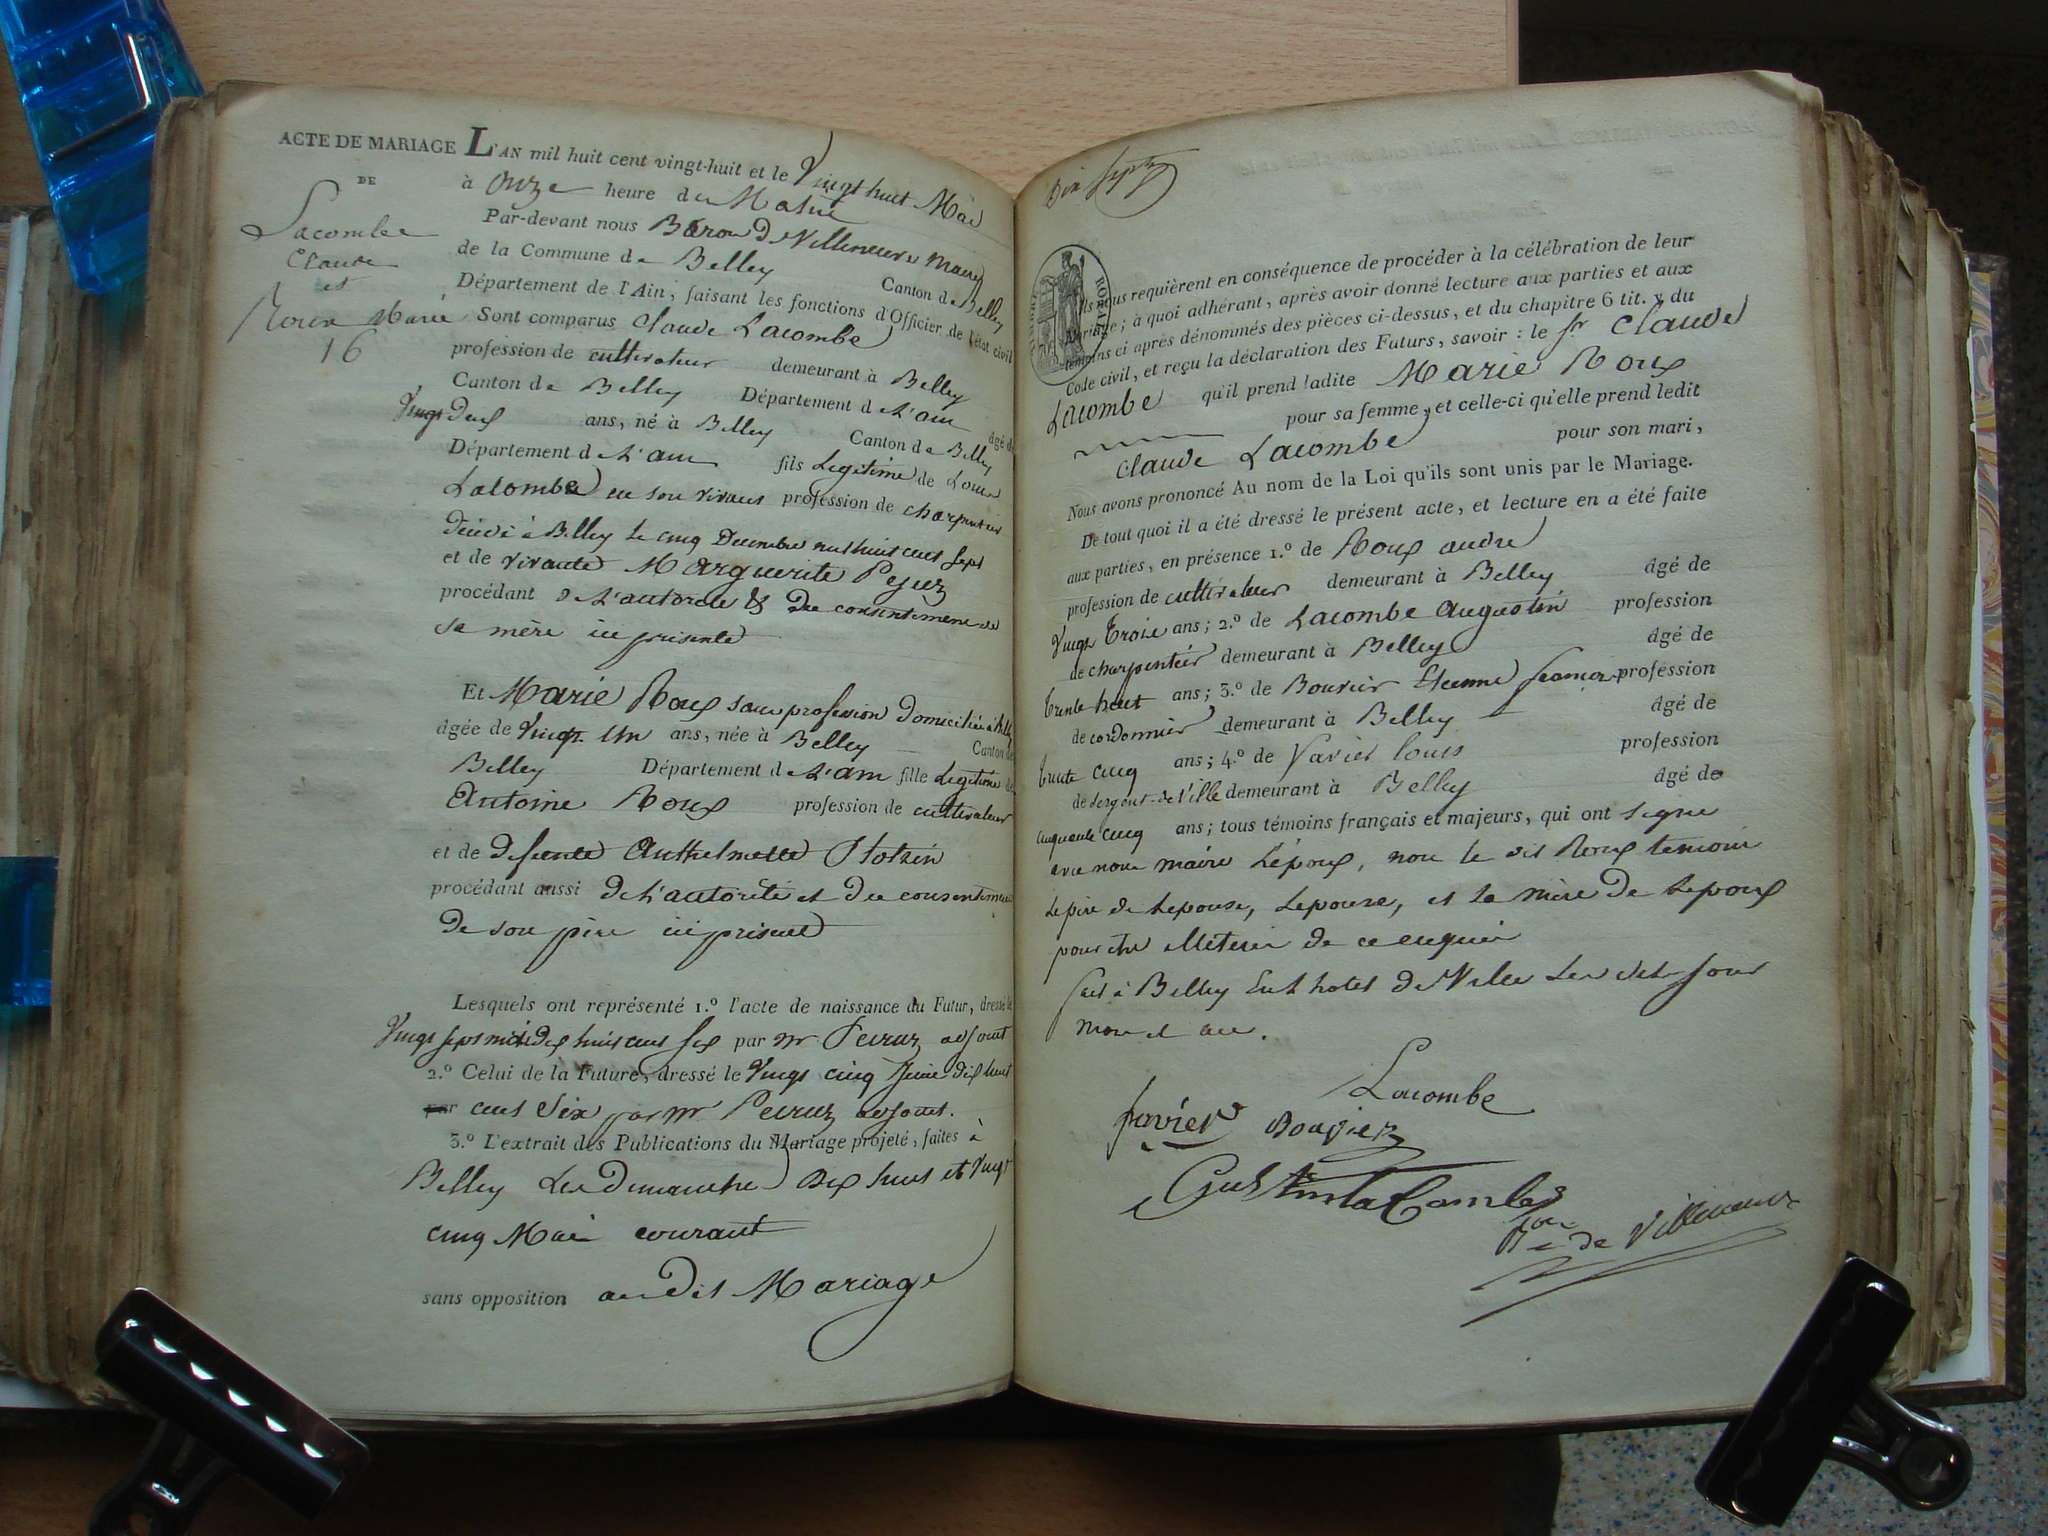 ACTE DE MARIAGE
DE
Lacombe
Claude
et
Roux Marie
16
L'AN mil huit cent vingt-huit et le Vingt huit Mai
à Onze heure du Matin
Par-devant nous Baron de Villeneuve Maire
de la Commune de Belley Canton de Belley
Département de l'Ain, faisant les fonctions d'Officier de l'état civil
Sont comparus Claude Lacombe
profession de cultivateur demeurant à Belley
Canton de Belley Département d L'ain âgé de
Vingt Deux ans, né à Belley Canton de Belley
Département d L'ain fils Legitime de Louis
Lacombe en son vivant profession de charpentier
décédé à Belley le cinq Decembre mil huit cent sept
et de vivante Marguerite Pejuz
procédant de L'autorité & du consentement de
sa mère ici presente
Et Marie Roux sans profession domiciliée à Belley
âgée de Vingt Un ans, née à Belley Canton de
Belley Département d L'ain fille Legitime de
Antoine Roux profession de cultivateur
et de defunte Anthelmette
procédant aussi de L'autorité et du consentement
de son père ici présent
Lesquels ont représenté 1.º l'acte de naissance du Futur, dressé le
Vingt sept dix huit cent six par mr Peyruz adjoint
2.º Celui de la Future, dressé le Vingt cinq Juin dix huit
par cent Six par mr Peyruz adjoint.
3.º L'extrait des Publications du Mariage projeté, faites à
Belley Les Dimanche Dix huit et Vingt
cinq Mai courant
sans opposition au Dit Mariage
Dix Sept
ROYAL
Ils nous requièrent en conséquence de procéder à la célébration de leur
Mariage; à quoi adhérant, après avoir donné lecture aux parties et aux
témoins ci après dénommés des pièces ci-dessus, et du chapitre 6 tit. v du
Code civil, et reçu la déclaration des Futurs, savoir : le Sr Claude
Lacombe qu'il prend ladite Marie Roux
pour sa femme, et celle-ci qu'elle prend ledit
Claude Lacombe pour son mari,
Nous avons prononcé Au nom de la Loi qu'ils sont unis par le Mariage.
De tout quoi il a été dressé le présent acte, et lecture en a été faite
aux parties, en présence 1.º de Roux andre
profession de cultivateur demeurant à Belley âgé de
Vingt Trois ans; 2.º de Lacombe Augustin profession
de charpentier demeurant à Belley âgé de
Trente huit ans; 3.º de Bouvier Etienne profession
de cordonnier demeurant à Belley âgé de
Trente cinq ans; 4.º de Varier Louis profession
de sergent-de-Ville demeurant à Belley âgé de
cinquante cinq ans; tous témoins français et majeurs, qui ont signé
avec nous maire L'époux, non le dit Roux temoin
Le père de Lepouse, Lepouse, et la mère de Lepoux
pour être illiteré de ce enquis
fait à Belley En L'hotel de Ville Les dits Jour
mois et an.
Lacombe
Bouvier
Gustin la Combe
Bon de Villeneuve